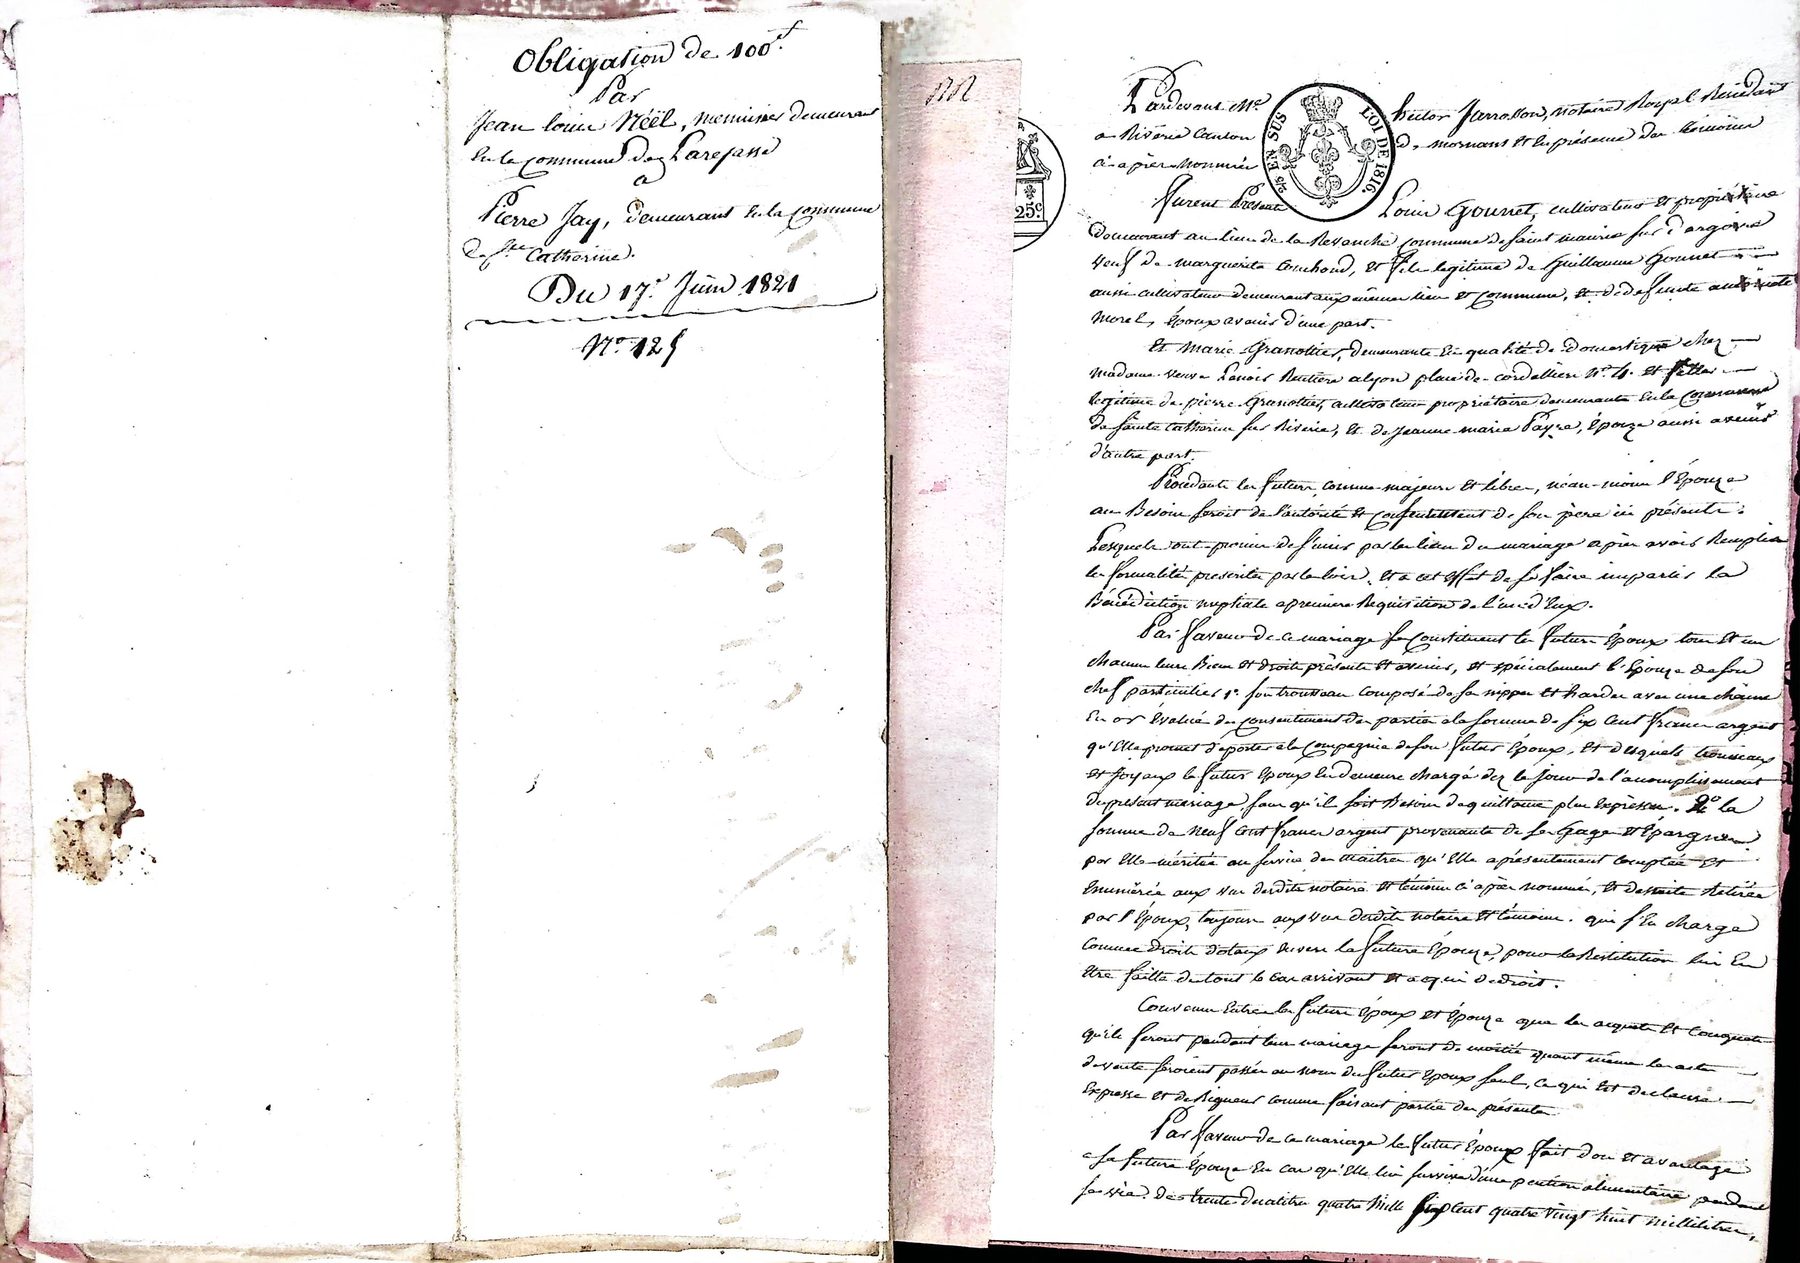 Obligation de 100f.
Par
Jean louis Néël, menuisier demeurant
En la Commune de Larejasse
a
Pierre Jay, demeurant En la Commune
de Ste Catherine.
Du 17e Juin 1821
N° 125
Pardevant Me hector Jarrosson, notaire Royal Résidant
a Riverie Canton de mornant et En présence des témoins
ci-après Nommés
25 EN SUS
LOI DE 1816
25c
furent Présents Louis Gonnet, cultivateur et propriétaire
demeurant au lieu de la Revanche Commune de saint maurice sur d'argoire
veuf de marguerite , et fils legitime de Guillaume Gonnet
aussi cultivateur demeurant aux mêmes lieu et commune, et de defunte antoinette
Morel, Époux avenir d'une part.
Et Marie Granottier, demeurante En qualité de domestique chez
madame veuve Rentiere a lyon place des cordelliers N° 4. et fille
legitime de pierre Granottier, cultivateur propriétaire demeurante En la Commune
de sainte Catherine sur Riverie, et de Jeanne marie Payre, Épouze aussi avenir
d'autre part.
Procedants les futurs, comme majeurs et libres, néan-moins l'Épouze
au Besoin seroit de l'autorité et Consentement de son père ici présente.
Lesquels ont promis de s'unir par les liens du mariage après avoir Remplies
les formalités prescrites par les loix, et a cet effet de se faire impartir la
Bénédiction nuptiale a premiere Requisition de l'un d'Eux.
Par faveur de ce mariage se Constituent les futurs Époux tous et un
chacuns leurs Biens et droits présents et avenir, et spécialement l'Épouze de son
chef particulier 1° son trousseau composé de ses nippes et hardes avec une chaine
En or évalué du consentement des parties a la somme de six Cent francs argent
qu'Elle promet d'apporter a la Compagnie de son futur Époux, et desquels trousseaux
et Joyaux le futur Époux En demeure chargé dez le jour de l'accomplissement
du présent mariage sans qu'il soit Besoin de quittance plus Expresse. 2° la
somme de Neuf Cent francs argent provenante de ses Gages et Épargnes
par Elle méritée au service des maitres qu'Elle a présentement comptée et
Enumérée aux vus desdits notaire et témoins ci après nommés, et de suite Retirée
par l'Époux, toujours aux vus desdits notaire et témoins. qui s'En charge
Comme droits dotaux Envers la future Épouze, pour la Restitution lui En
Etre faitte de tout le cas arrivant et a qui de droit.
Convenu Entre les futurs Époux et Épouze que les acquets et Conquets
qu'ils feront pendant leur mariage seront de moitié quant même les actes
de vente seroient passés au nom du futur Époux seul, ce qui Est de clause
Expresse et de Rigueur comme faisant partie des présentes
Par faveur de ce mariage le futur Époux fait don et avantage
a sa future Épouze En cas qu'Elle lui survive d'une pention alimentaire pendant
sa vie. de trente decalitre quatre Mille sept Cent quatre vingt huit millilitres,